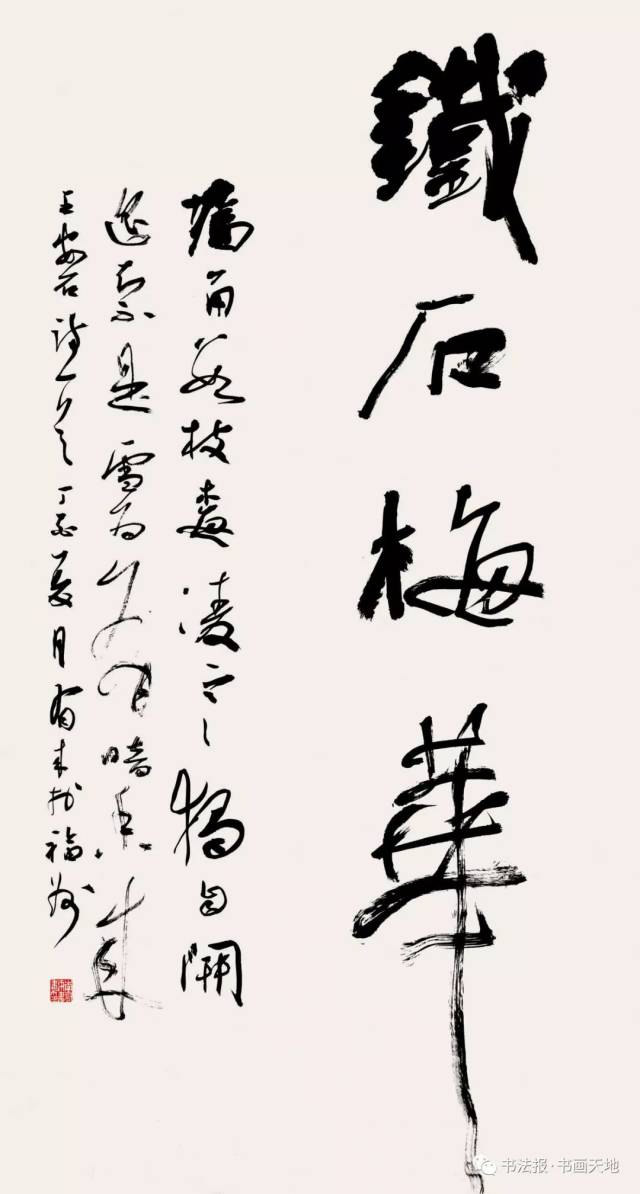 鐵石梅華
墻角數枝梅凌寒獨自開
遥知不是雪为有暗香来
王安石诗一首 丁酉夏月有来於福州
书法报·书画天地